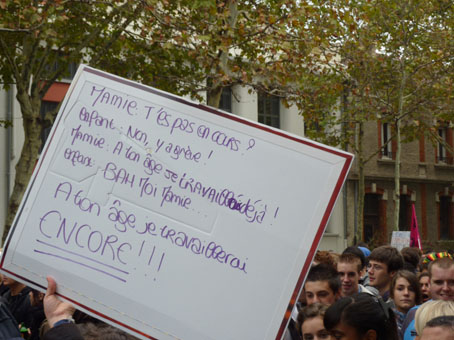 MAMIE: T'ES PAS EN COURS?
Enfant: Non, y a grève!
Mamie: A ton âge je TRAVAILLAIS déjà!!
Enfant: BAH MOI Mamie...
A ton âge je travaillerai
ENCORE!!!